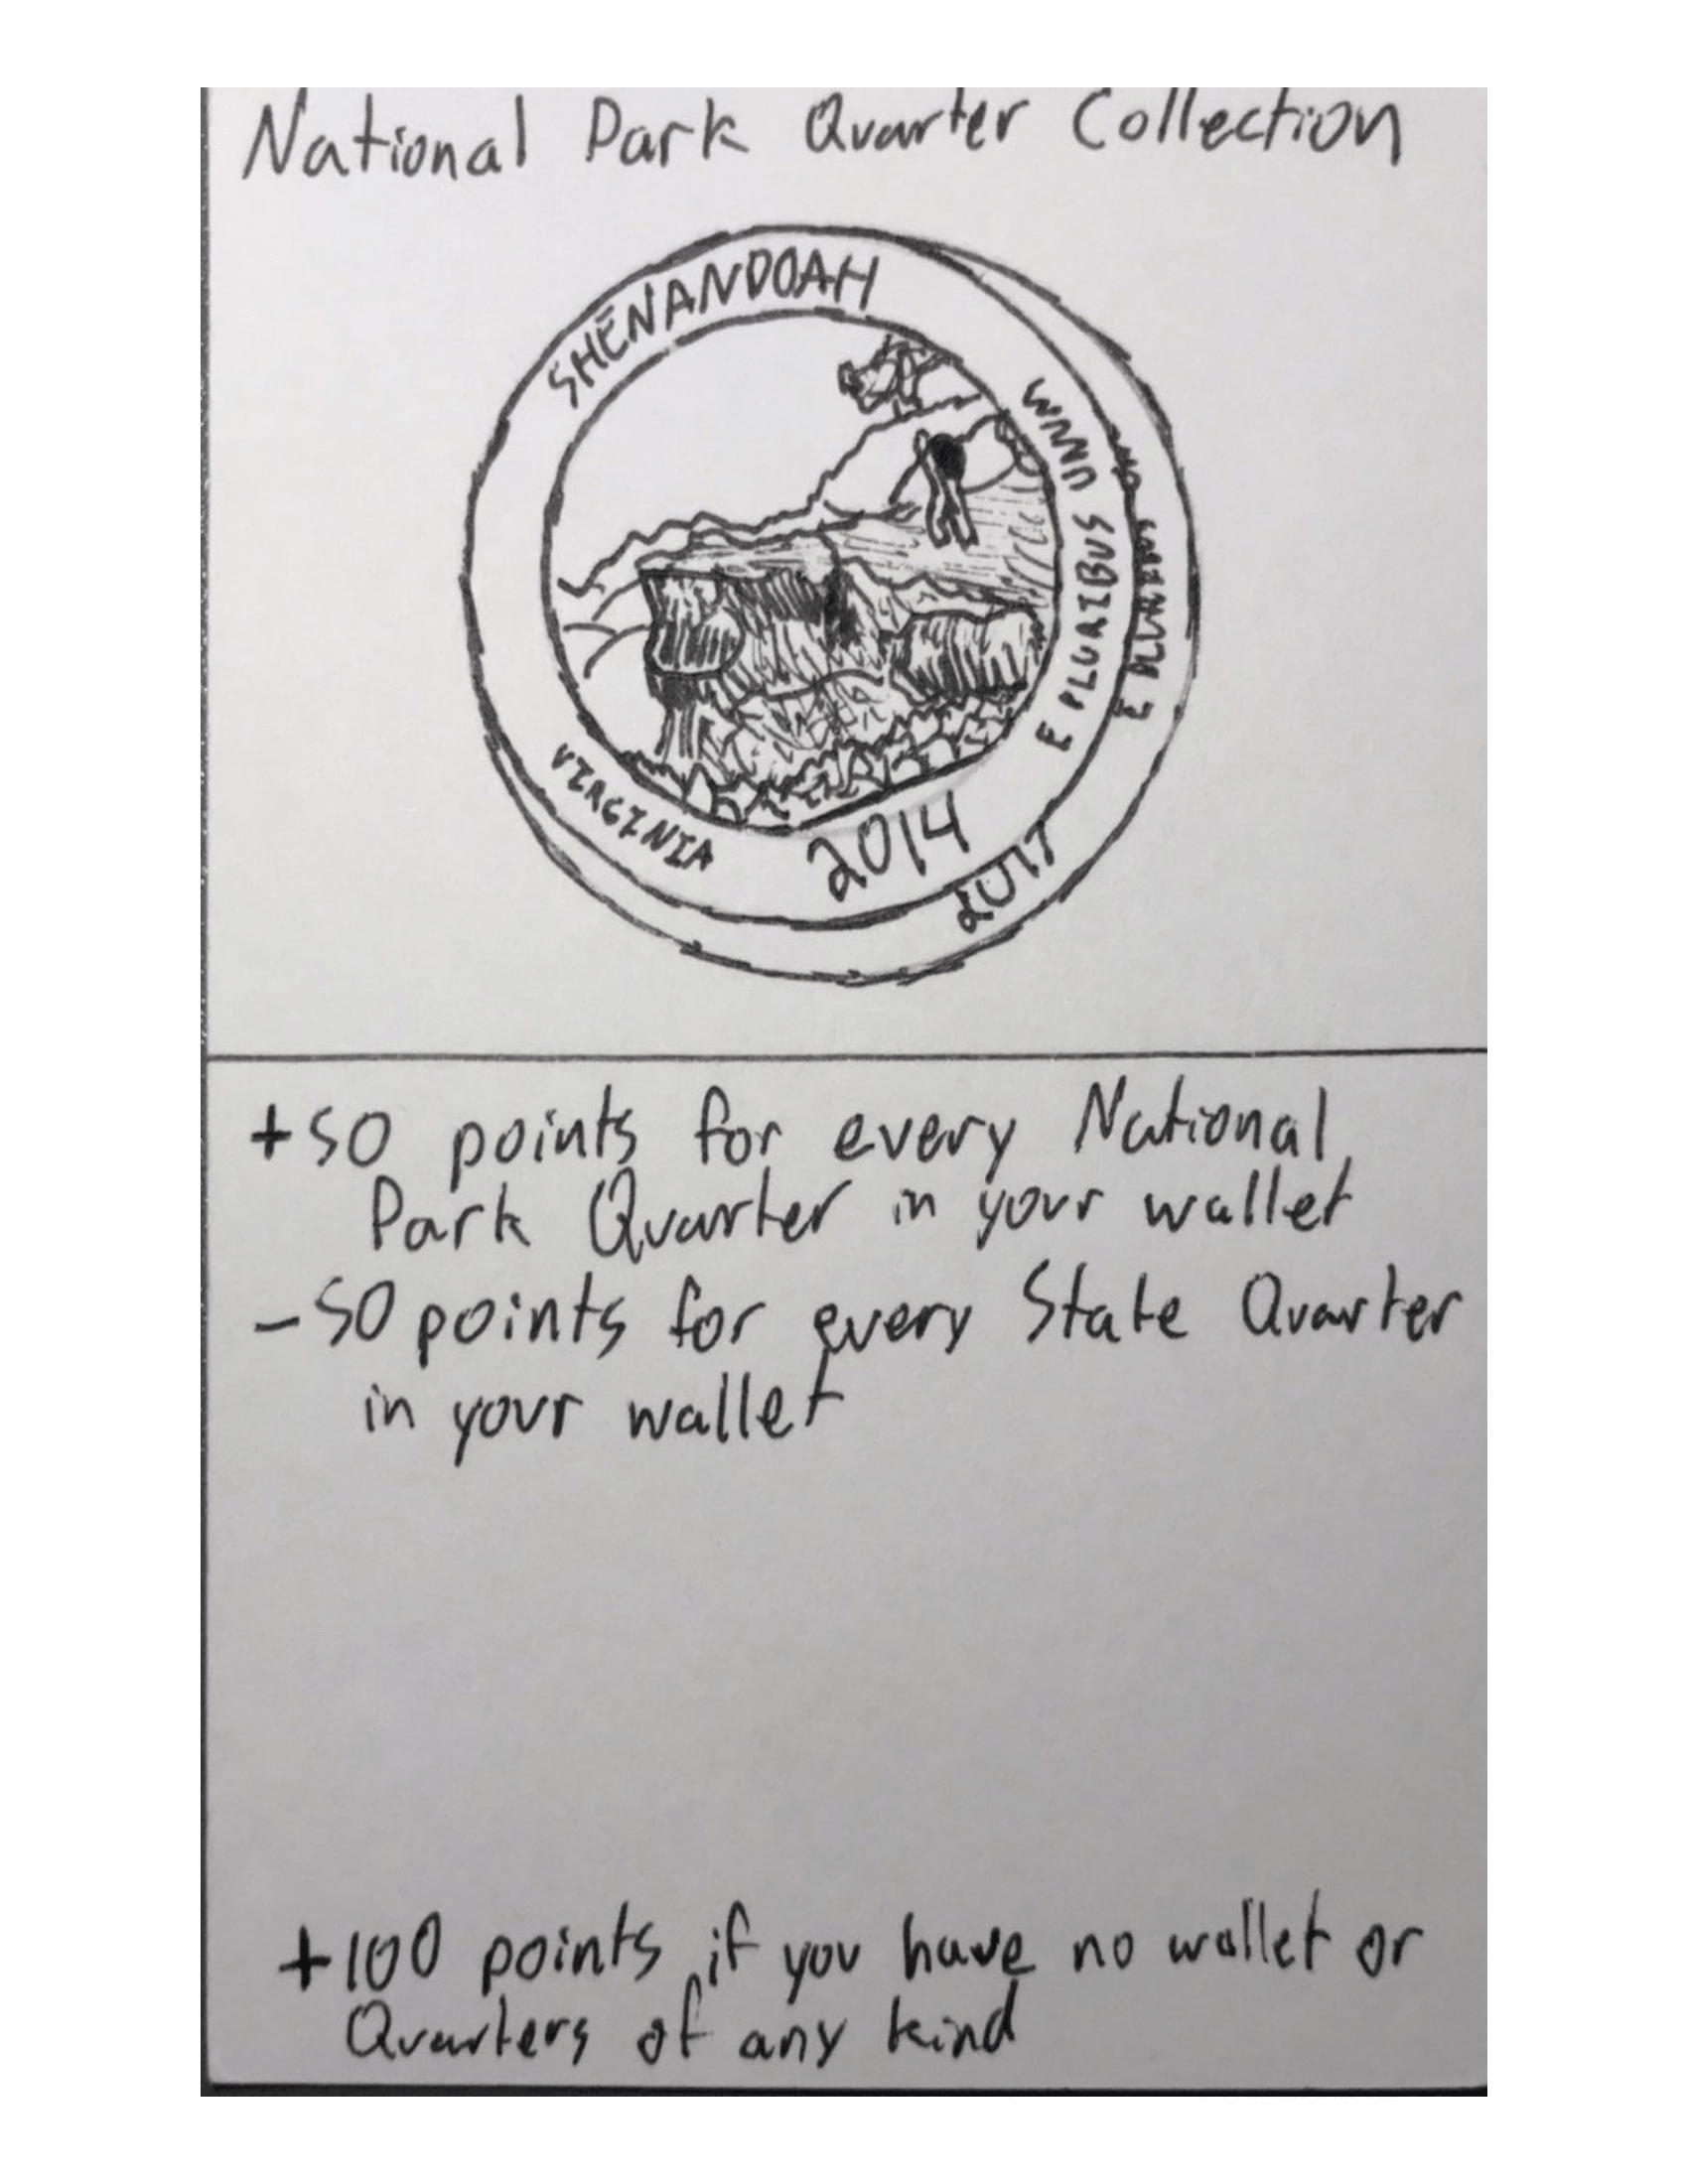 National Park Quarter Collection
SHENANDOAH
E PLURIBUS UNUM
VIRGINIA
2014
+50 points for every National
Park Quarter in your wallet
-50 points for every State Quarter
in your wallet
+100 points if you have no wallet or
Quarters of any kind